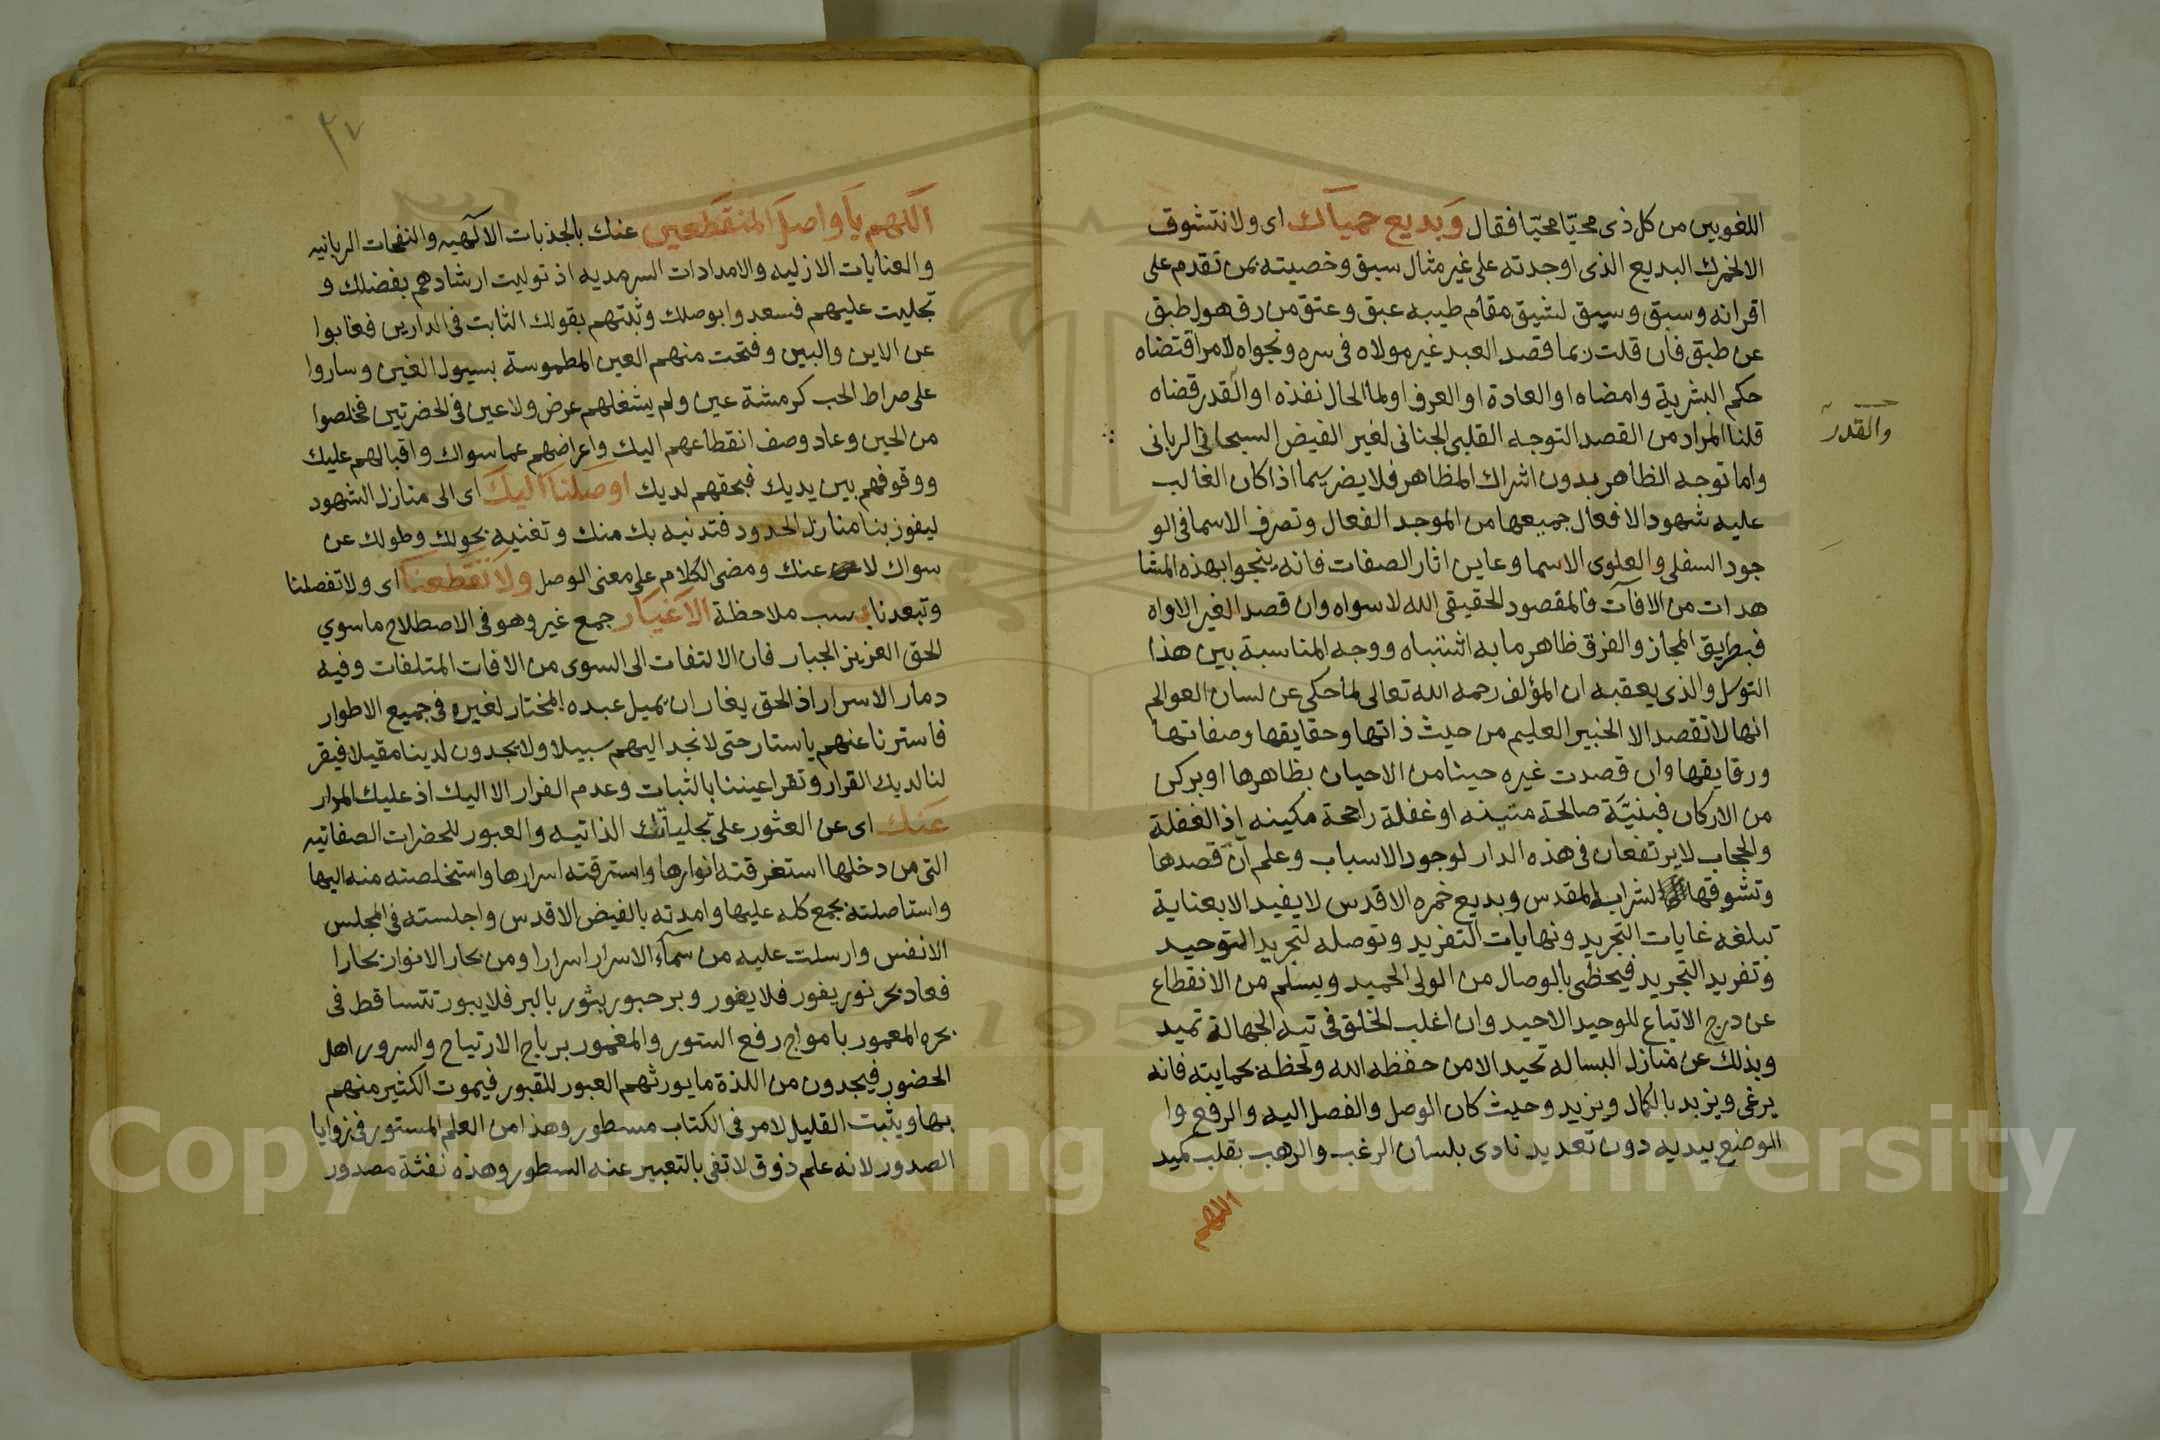 اللغويين من كل ذى محيّا محيّا فقال وبديع حمياك اى ولا نتشوق
الا لخمرك البديع الذى اوجدته على غير مثال سبق وخصيته بمن تقدم على
اقرانه وسبق وسيق لشيق مقام طيبه عبق وعتق من رق هول طبق
عن طبق فان قلت ربما قصد العبد غير مولاه فى سره ونجواه لامر اقتضاه
حكم البشرية وامضاه او العادة او العرف اولما الحال نفذه او القدر قضاه
والقدر
قلنا المراد من القصد التوجه القلبى الجنانى لغير الفيض السبحانى الربانى
واما توجه الظاهر بدون اشراك المظاهر فلا يضر سيما اذا كان الغالب
عليه شهود الافعال جميعها من الموجد الفعال وتصرف الاسما فى الو
جود السفلى والعلوى الاسما وعاين اثار الصفات فانه ينجوا بهذه المشا
هدات من الافات فالمقصود الحقيقى الله لا سواه وان قصد الغير الاواه
فبطريق المجاز والفرق ظاهر ما به اشتباه ووجه المناسبة بين هذا
التوسل والذى يعقبه ان المؤلف رحمه الله تعالى لما حكى عن لسان العوالم
انها لا تقصد الا الخبير العليم من حيث ذاتها وحقايقها وصفاتها
ورقايقها وان قصدت غيره حينا من الاحيان بظاهرها او بركن
من الاركان فبنيَّة صالحة متينه او غفلة راجحة مكينه اذ الغفلة
والحجاب لا يرتفعان فى هذه الدار لوجود الاسباب وعلم ان قصدها
وتشوقها لشرابه المقدس وبديع خمره الاقدس لا يفيد الا بعناية
تبلغه غايات التجريد ونهايات التفريد وتوصله لتجريد التوحيد
وتفريد التجريد فيحظى بالوصال من الولى الحميد ويسلم من الانقطاع
عن درج الاتباع للوحيد الاحيد وان اغلب الخلق فى تيه الجهالة تميد
وبذلك عن منازل البساله تحيد الا من حفظه الله ولحظه بحمايته فانه
يرغى ويزبد بالكمال ويزيد وحيث كان الوصل والفصل اليه والرفع وا
الوضع بيديه دون تعديد نادى بلسان الرغب والرهب بقلب كميد
اللهم
٣٧
اللهم يا واصل المنقطعين عنك بالجذبات الالهيه والنفحات الربانيه
والعنايات الازليه والامدادات السرمديه اذ توليت ارشادهم بفضلك و
تجليت عليهم فسعدوا بوصلك وثبتهم بقولك الثابت فى الدارين فغابوا
عن الاين والبين وفتحت منهم العين المطموسة بسيول الغين وساروا
على صراط الحب كرمشة عين ولم يشغلهم عرض ولا عين فى الحضرتين فخلصوا
من الحين وعاد وصف انقطاعهم اليك واعراضهم عما سواك واقبالهم عليك
ووقوفهم بين يديك فبحقهم لديك اوصلنا اليك اى الى منازل الشهود
ليفوز بنا منازل الحدود فتدنيه بك منك وتغنيه بحولك وطولك عن
سواك لا عنك ومضى الكلام على معنى الوصل ولا تقطعنا اى ولا تفصلنا
وتبعدنا بسبب ملاحظة الاغيار جمع غير وهو فى الاصطلاح ما سوي
الحق العزيز الجبار فان الالتفات الى السوى من الافات المتلفات وفيه
دمار الاسرار اذ الحق يغار ان يميل عبده المختار لغيره فى جميع الاطوار
فاسترنا عنهم يا ستار حتى لا نجد اليهم سبيلا ولا يجدون لدينا مقيلا فيقر
لنا لديك القرار وتقر اعيننا بالثبات وعدم الفرار الا اليك اذ عليك المرار
عنك اى عن العثور على تجلياتك الذاتيه والعبور للحضرات الصفاتيه
التى من دخلها استغرقته انوارها واسترقته اسرارها واستخلصته منه اليها
واستاصلته بجمع كله عليها وامدته بالفيض الاقدس واجلسته فى المجلس
الانفس وارسلت عليه من سماء الاسرار اسرارا ومن بحار الانوار بحارا
فعاد بحر نور يفور فلا يغور وبر حبور يثور بالبر فلا يبور تتساقط فى
بحره المعمور بامواج رفع الستور والمغمور برياح الارتياح والسرور اهل
الحضور فيجدون من اللذة ما يورثهم العبور للقبور فيموت الكثير منهم
بها ويثبت القليل لامر فى الكتاب مسطور وهذا من العلم المستور فى زوايا
الصدور لانه علم ذوق لا تفى بالتعبير عنه السطور وهذه نفثة مصدور
Copyright © King Saud University
1957